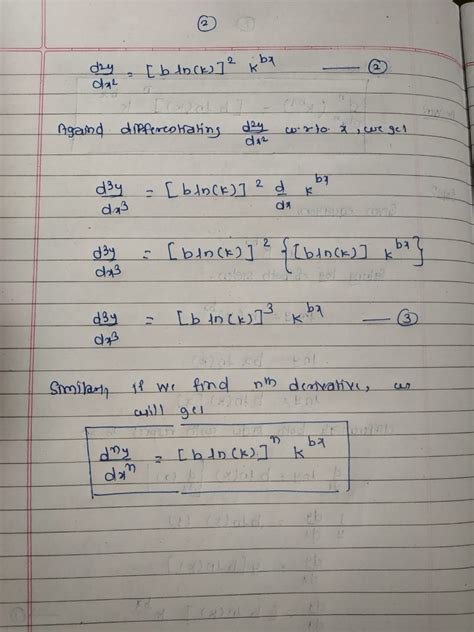 ②
d²y/dx² = [b ln(k)]² k^bx —— ②
Againd differentiating d²y/dx² w.r.to x, we get
d³y/dx³ = [b ln(k)]² d/dx k^bx
d³y/dx³ = [b ln(k)]² {[b ln(k)] k^bx}
d³y/dx³ = [b ln(k)]³ k^bx —— ③
Similarly if we find nth derivative, we
will get
dⁿy/dxⁿ = [b ln(k)]ⁿ k^bx